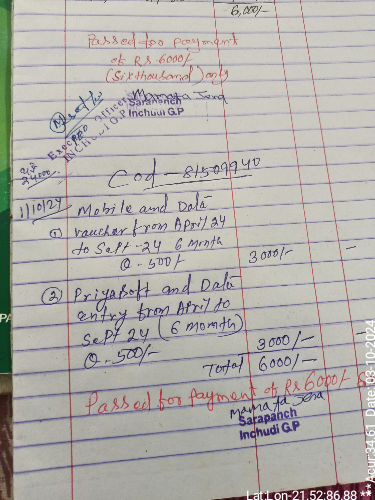 6,000/-
Passed for payment
of Rs. 6000/-
(Six thousand) only
Mamata Jena
Sarapanch
Inchudi G.P
Executive Officer
Inchudi G.P
Cod - 81509940
1/10/24 Mobile and Data
① vaucher from April 24
to Sept - 24 6 Month
@ - 500/- 3000/- -
② Priyasoft and Data
entry from April to
Sept 24 (6 month)
@ - 500/- 3000/-
Total 6000/-
Passed for Payment of Rs 6000/-
Mamata Jena
Sarapanch
Inchudi G.P
Lat Lon-21.52:86.88 ***
Acur:34.61 Date:03-10-2024